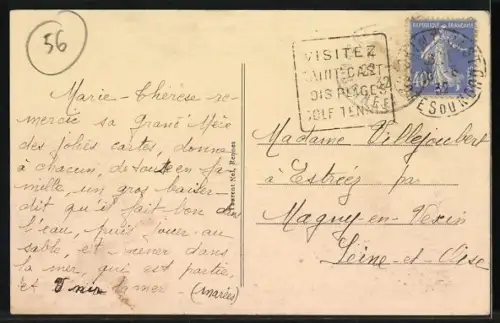 56
VISITEZ
SAINT-CAST
DIS PLAGES
GOLF TENNIS
REPUBLIQUE FRANÇAISE
40c
Marie-Thérèse re-
mercie sa Grand'Mère
des jolies cartes, donne
à chacun, de toute en fa-
mille, un gros baiser
dit qu'il fait bon dans
l'eau, puis jouer au
sable, et mener dans
la mer, qui est partie
et la mer (marées)
Laurent Nel, Rennes
Madame Villejoubert
à Estréez par
Magny-en-Vexin
Seine-et-Oise